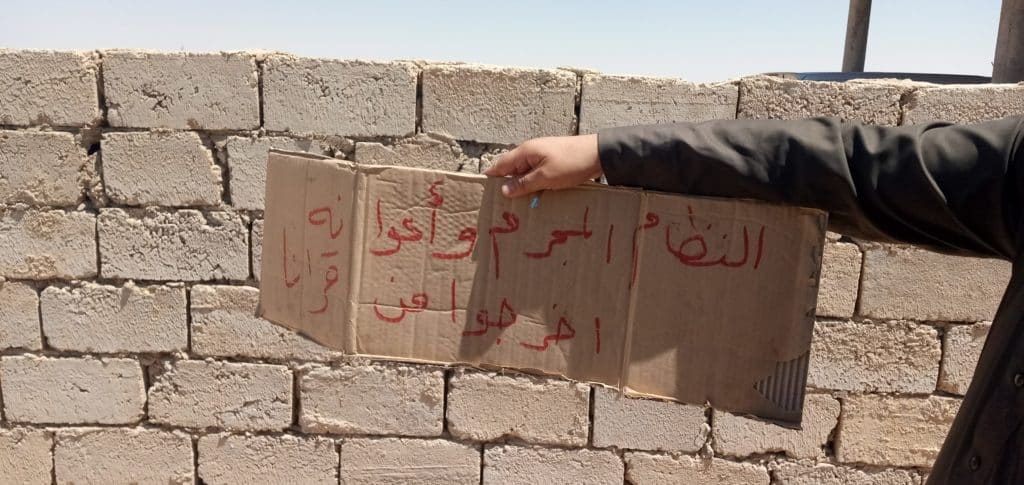 النظام المجرم وأعوانه
اخرجوا من قرانا